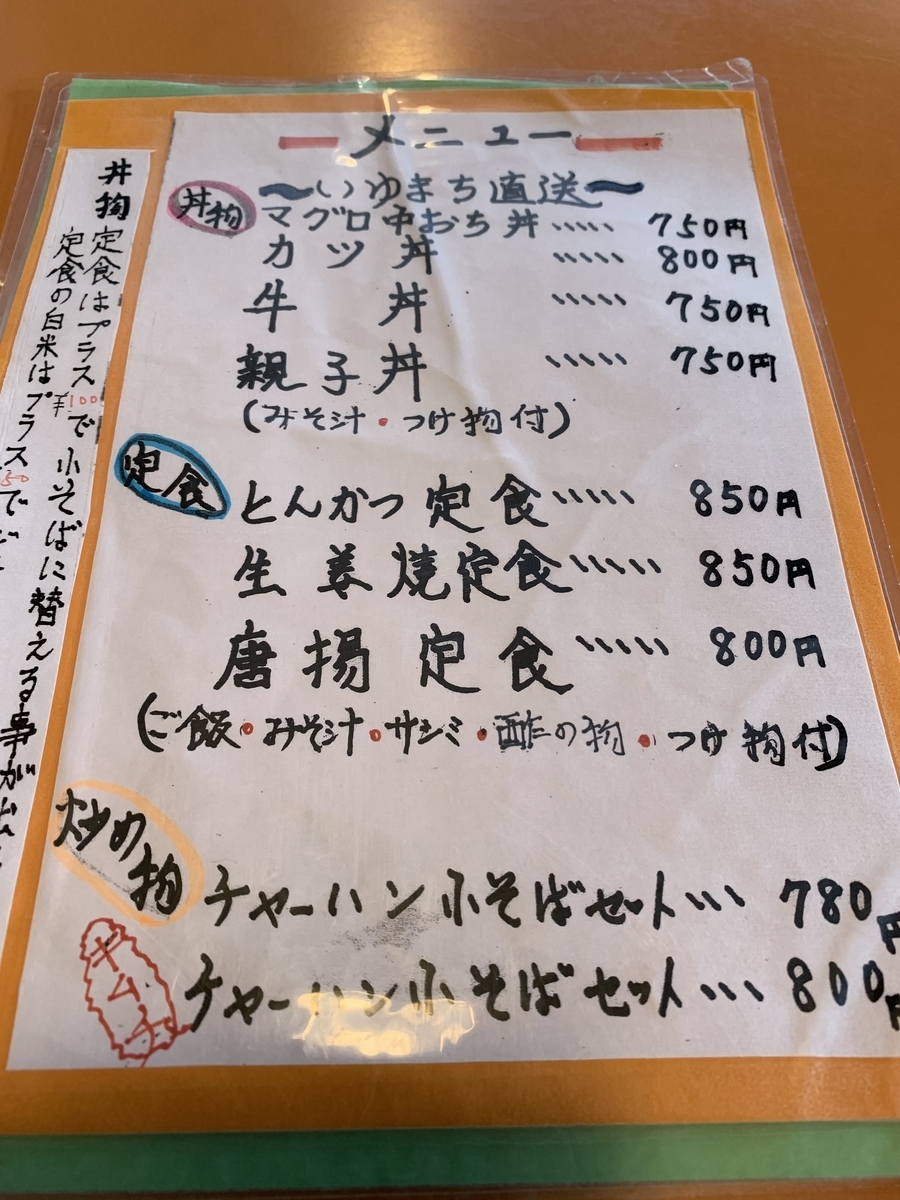 メニュー
丼物
〜いゆまち直送〜
マグロ中おち丼 ····· 750円
カツ丼 ····· 800円
牛丼 ····· 750円
親子丼 ····· 750円
(みそ汁・つけ物付)
定食
とんかつ定食 ····· 850円
生姜焼定食 ····· 850円
唐揚定食 ····· 800円
(ご飯・みそ汁・サシミ・酢の物・つけ物付)
炒め物
チャーハン小そばセット ··· 780円
キムチ
チャーハン小そばセット ··· 800円
丼物 定食はプラス¥100で小そばに替える事が
定食の白米はプラス50で